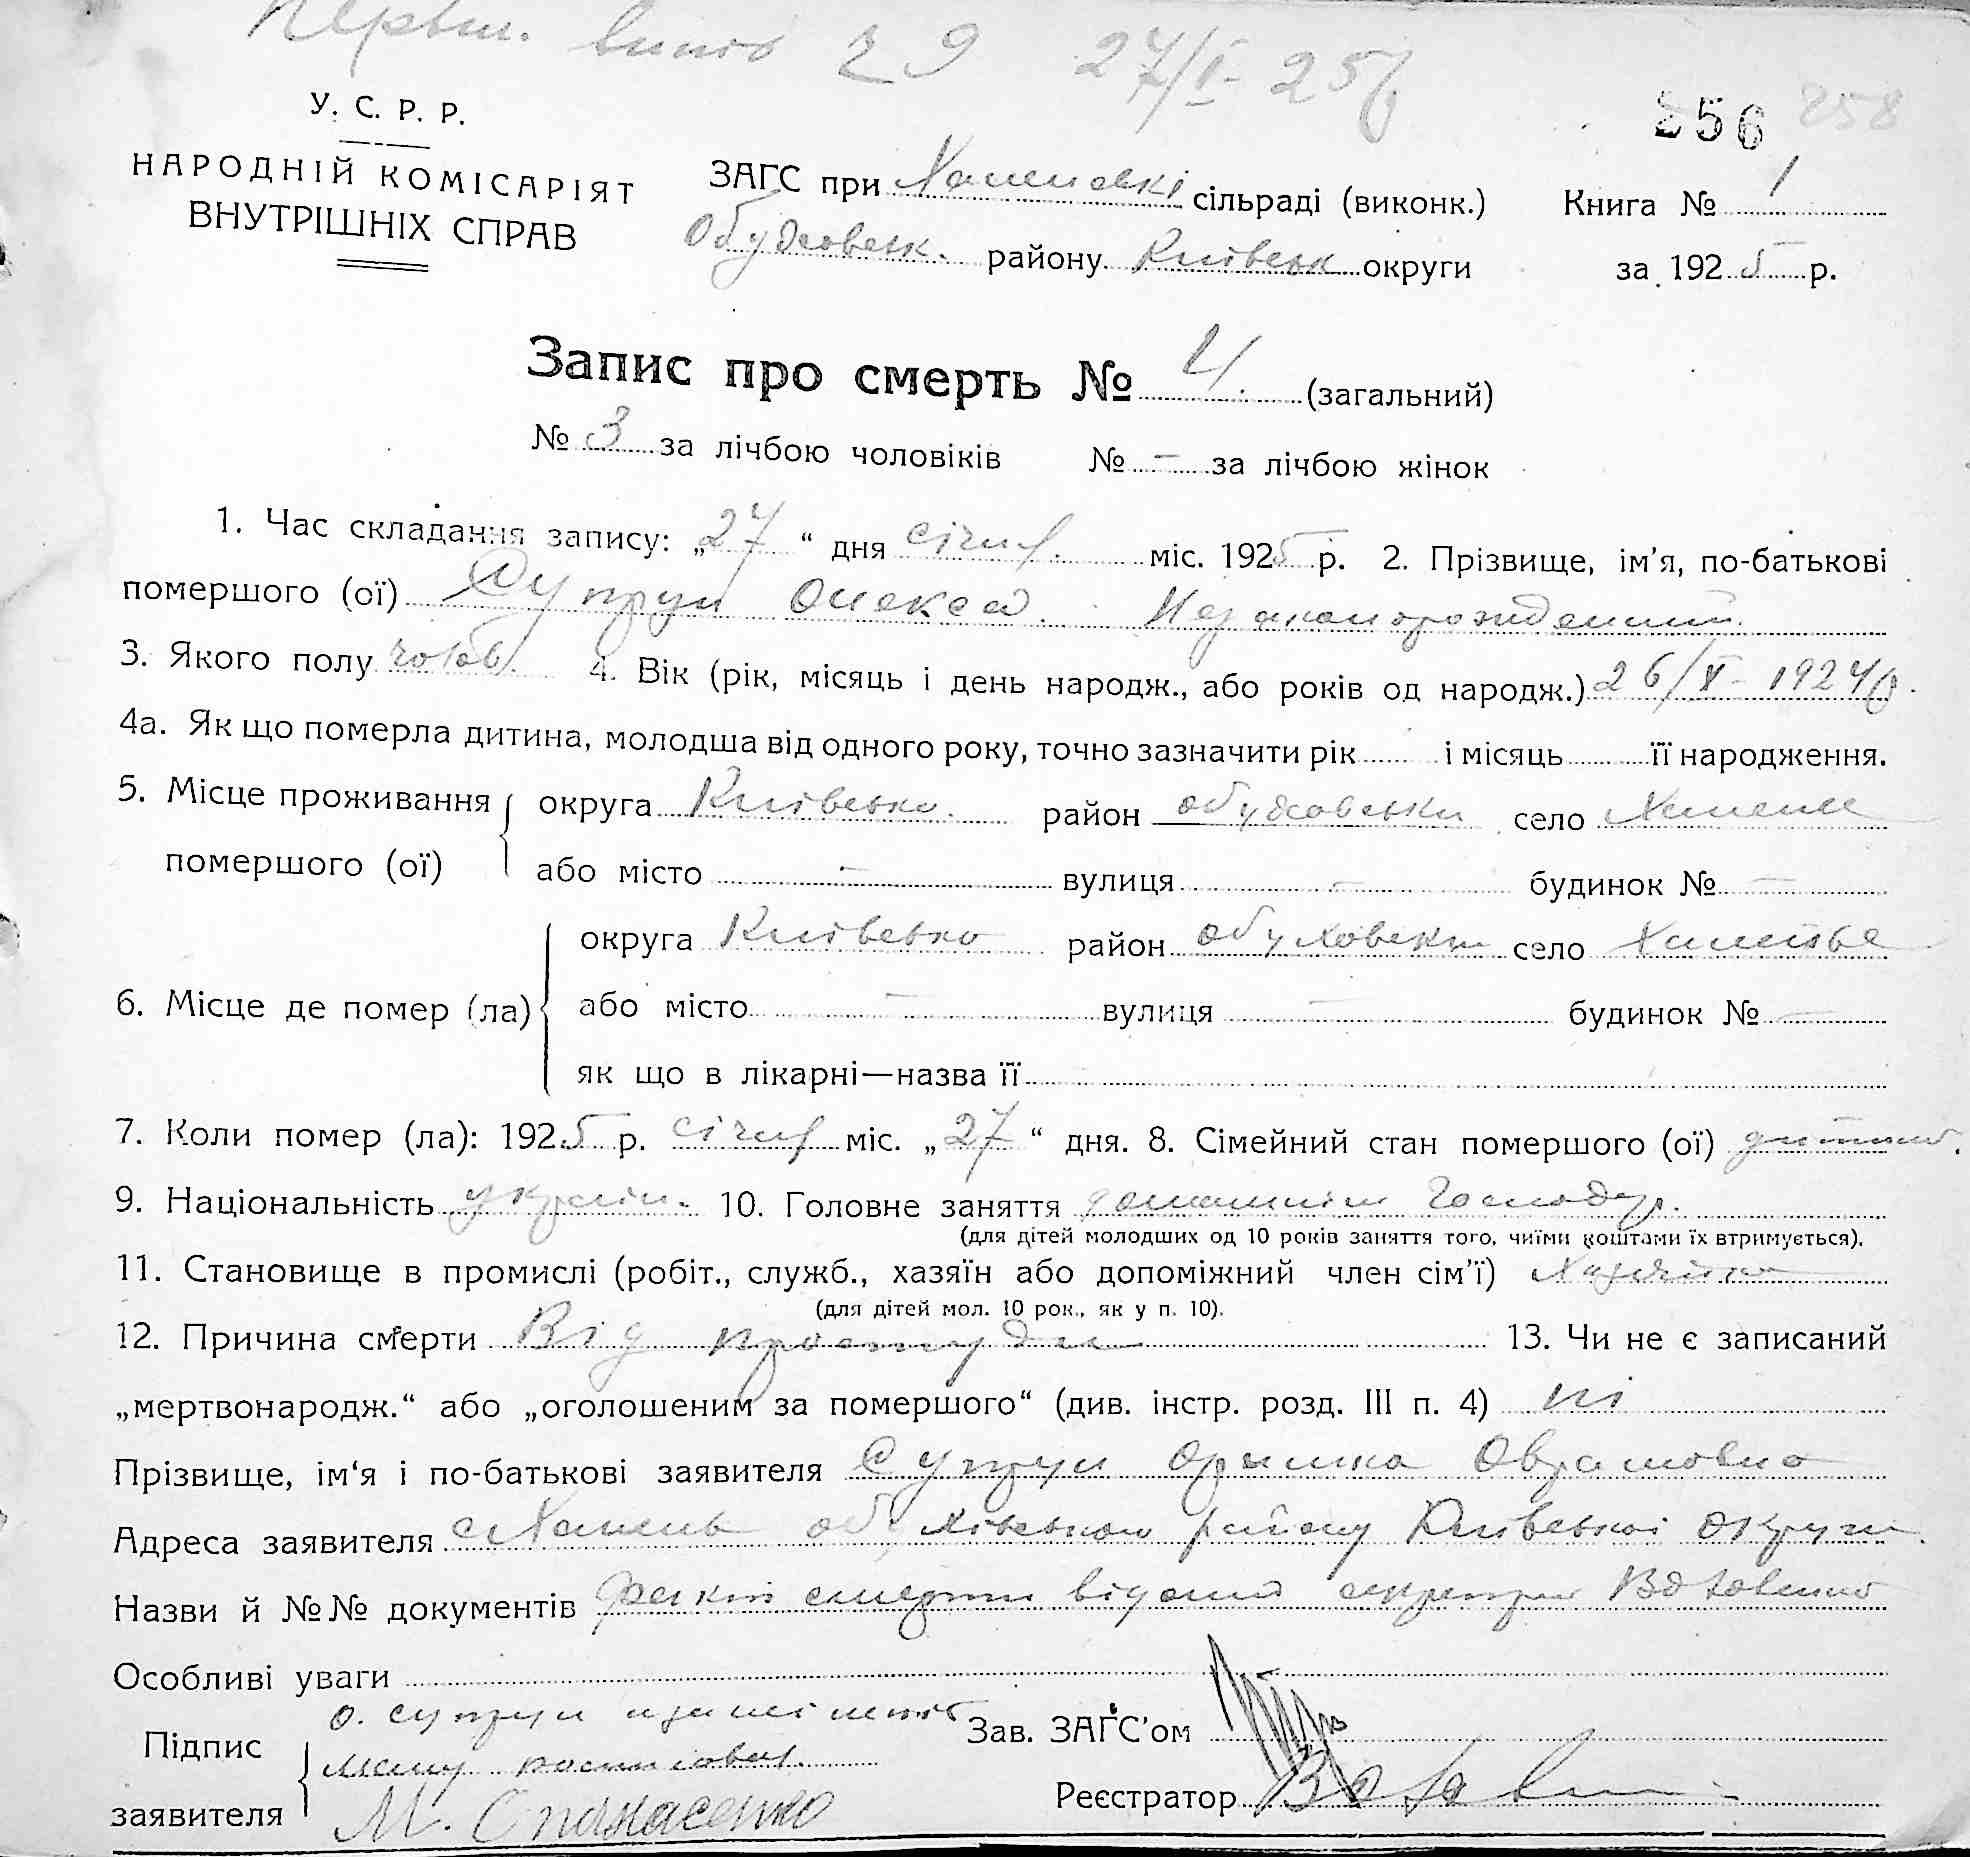 27/I-25р
У. С. Р. Р.
256 258
НАРОДНІЙ КОМІСАРІЯТ
ВНУТРІШНІХ СПРАВ
ЗАГС при сільраді (виконк.) Книга № 1
району Київськ округи за 1925 р.
Запис про смерть № 4. (загальний)
№ 3 за лічбою чоловіків № — за лічбою жінок
1. Час складання запису: „27“ дня січня міс. 1925 р. 2. Прізвище, ім'я, по-батькові
помершого (ої) Супрун Олекса. Незаконорожденний
3. Якого полу чолов. 4. Вік (рік, місяць і день народж., або років од народж.) 26/X-1924р.
4а. Як що померла дитина, молодша від одного року, точно зазначити рік і місяць її народження.
5. Місце проживання округа район село
помершого (ої) або місто — вулиця — будинок № —
округа район село
6. Місце де помер (ла) або місто — вулиця — будинок № —
як що в лікарні—назва її
7. Коли помер (ла): 1925 р. січня міс. „27“ дня. 8. Сімейний стан помершого (ої) дитина.
9. Національність україн. 10. Головне заняття господ.
(для дітей молодших од 10 років заняття того, чиїми коштами їх втримується).
11. Становище в промислі (робіт., служб., хазяїн або допоміжний член сім'ї)
(для дітей мол. 10 рок., як у п. 10).
12. Причина смерти Від простуди 13. Чи не є записаний
„мертвонародж.“ або „оголошеним за помершого“ (див. інстр. розд. III п. 4) ні
Прізвище, ім'я і по-батькові заявителя Супрун Оришка Оврамовна
Адреса заявителя району Київської округи.
Назви й №№ документів факт смерти
Особливі уваги
О. Супрун
Підпис Зав. ЗАГС'ом
заявителя М. Опанасенко Реєстратор